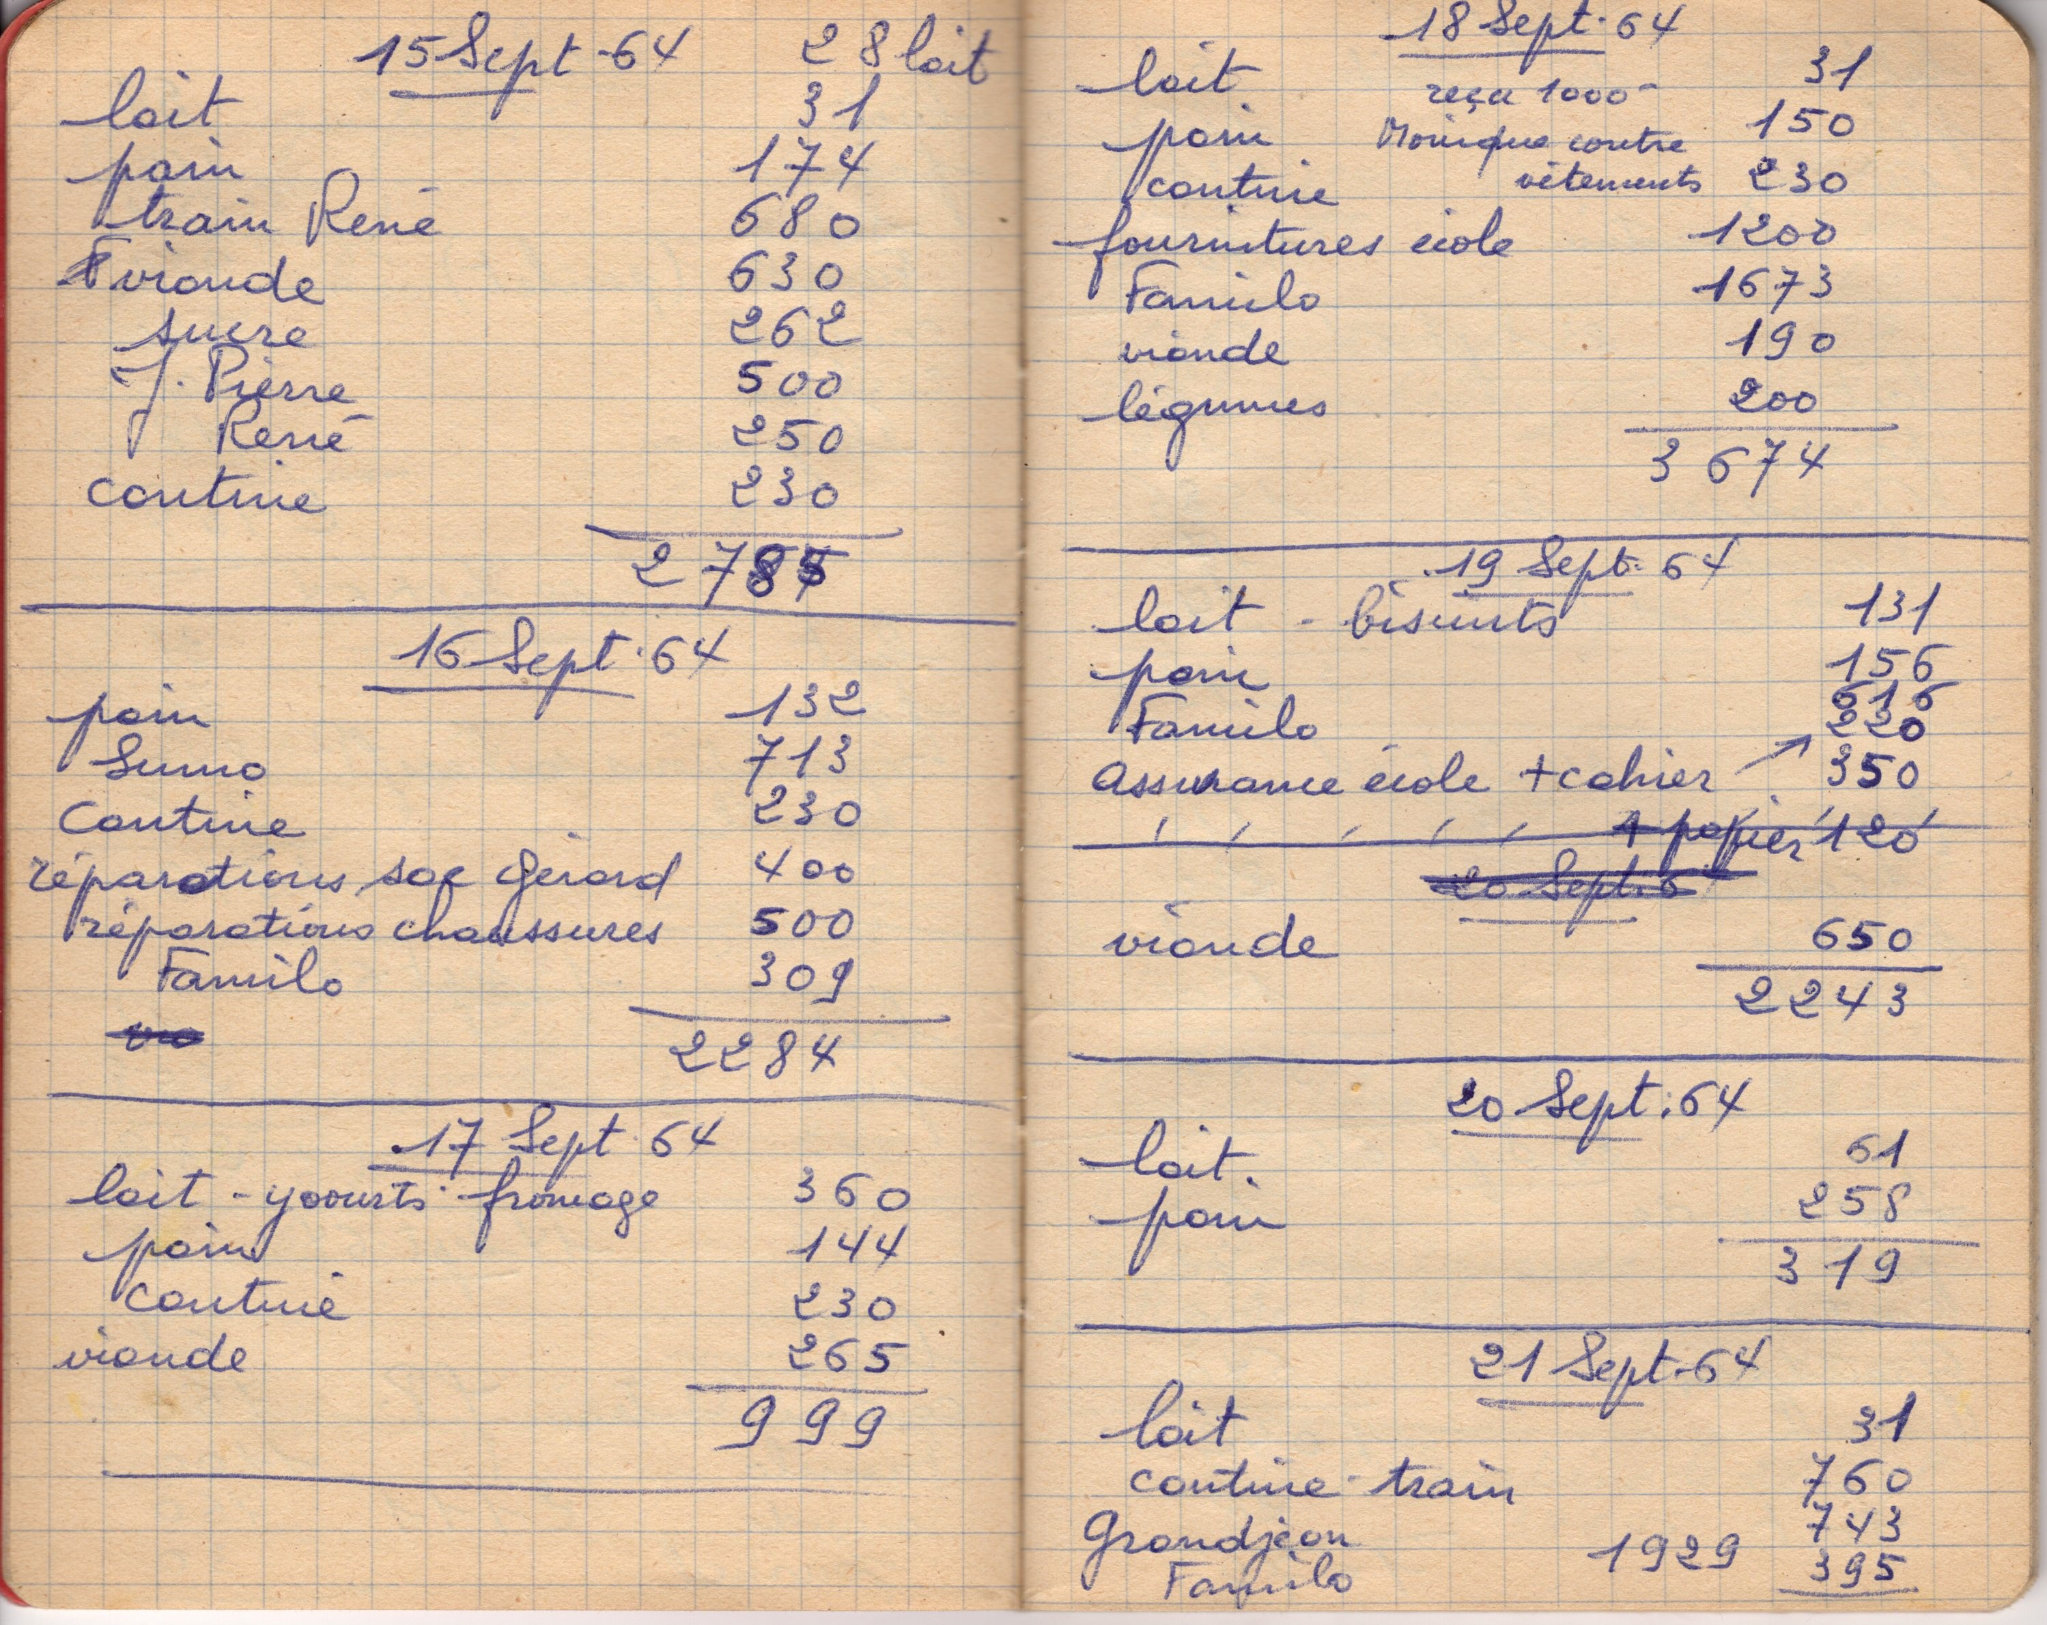 15 Sept. 64 28 lait
lait 31
pain 174
train René 680
viande 630
sucre 262
J. Pierre 500
René 250
cantine 230
2785
16 Sept. 64
pain 132
Suma 713
Cantine 230
réparations sac Gérard 400
réparations chaussures 500
Familo 309
2284
17 Sept. 64
lait - yaourts - fromage 360
pain 144
cantine 230
viande 265
999
18 Sept. 64
lait 31
reçu 1000
pain Monique contre 150
cantine vêtements 230
fournitures école 1200
Familo 1673
viande 190
légumes 200
3674
19 Sept. 64
lait - biscuits 131
pain 156
616
Familo 220
assurance école + cahier 350
papier 120
20 Sept. 6
viande 650
2243
20 Sept. 64
lait. 61
pain 258
319
21 Sept. 64
lait 31
cantine - train 760
Grandjean 743
Familo 1929 395